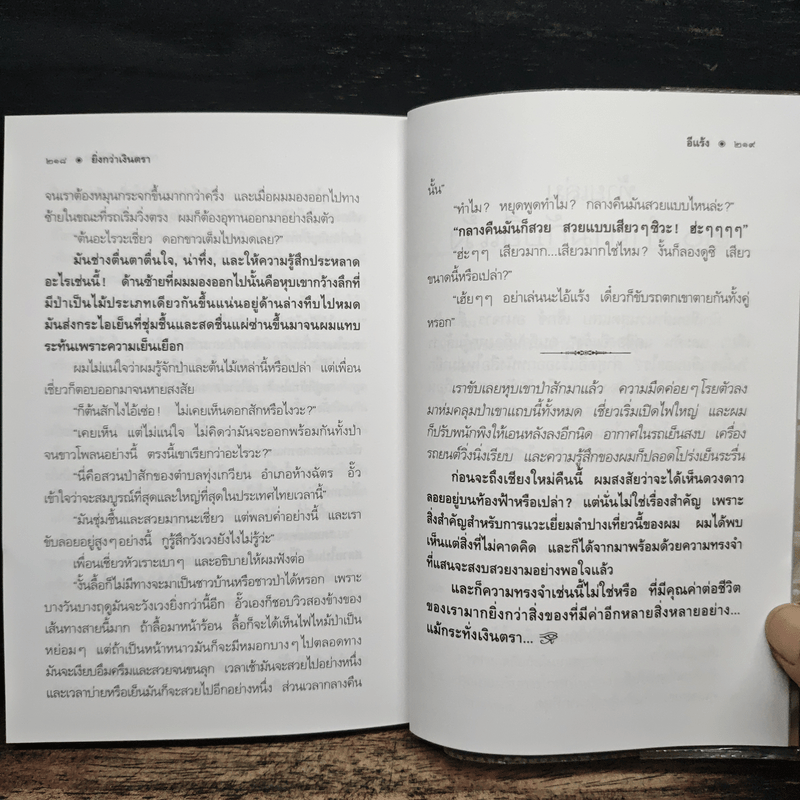 ๒๑๘ ๏ ยิ่งกว่าเงินตรา
จนเราต้องหมุนกระจกขึ้นมากกว่าครึ่ง และเมื่อผมมองออกไปทาง
ซ้ายในขณะที่รถเริ่มวิ่งตรง ผมก็ต้องอุทานออกมาอย่างลืมตัว
“ต้นอะไรวะเชี่ยว ดอกขาวเต็มไปหมดเลย?”
มันช่างตื่นตาตื่นใจ, น่าทึ่ง, และให้ความรู้สึกประหลาด
อะไรเช่นนี้! ด้านซ้ายที่ผมมองออกไปนั้นคือหุบเขากว้างลึกที่
มีป่าเป็นไม้ประเภทเดียวกันขึ้นแน่นอยู่ด้านล่างทึบไปหมด
มันส่งกระไอเย็นที่ชุ่มชื้นและสดชื่นแผ่ซ่านขึ้นมาจนผมแทบ
ระทันเพราะความเย็นเยือก
ผมไม่แน่ใจว่าผมรู้จักป่าและต้นไม้เหล่านี้หรือเปล่า แต่เพื่อน
เชี่ยวก็ตอบออกมาจนหายสงสัย
“ก็ต้นสักไงไอ้เซ่อ! ไม่เคยเห็นดอกสักหรือไงวะ?”
“เคยเห็น แต่ไม่แน่ใจ ไม่คิดว่ามันจะออกพร้อมกันทั้งป่า
จนขาวโพลนอย่างนี้ ตรงนี้เขาเรียกว่าอะไรวะ?”
“นี่คือสวนป่าสักของตำบลทุ่งเกวียน อำเภอห้างฉัตร อั๊ว
เข้าใจว่าจะสมบูรณ์ที่สุดและใหญ่ที่สุดในประเทศไทยเวลานี้”
“มันชุ่มชื้นและสวยมากนะเชี่ยว แต่พลบค่ำอย่างนี้ และเรา
ขับลอยอยู่สูงๆอย่างนี้ กูรู้สึกวังเวงยังไงไม่รู้ว่ะ”
เพื่อนเชี่ยวหัวเราะเบาๆ และอธิบายให้ผมฟังต่อ
“งั้นลื้อก็ไม่มีทางจะมาเป็นชาวบ้านหรือชาวป่าได้หรอก เพราะ
บางวันบางฤดูมันจะวังเวงยิ่งกว่านี้อีก อั๊วเองก็ชอบวิวสองข้างของ
เส้นทางสายนี้มาก ถ้าลื้อมาหน้าร้อน ลื้อก็จะได้เห็นไฟไหม้ป่าเป็น
หย่อมๆ แต่ถ้าเป็นหน้าหนาวมันก็จะมีหมอกบางๆไปตลอดทาง
มันจะเงียบอึมครึมและสวยจนขนลุก เวลาเช้ามันจะสวยไปอย่างหนึ่ง
และเวลาบ่ายหรือเย็นมันก็จะสวยไปอีกอย่างหนึ่ง ส่วนเวลากลางคืน
อีแร้ง ๏ ๒๑๙
นั้น”
“ทำไม? หยุดพูดทำไม? กลางคืนมันสวยแบบไหนล่ะ?”
“กลางคืนมันก็สวย สวยแบบเสียวๆซิวะ! ฮ่ะๆๆๆๆ”
“ฮ่ะๆๆ เสียวมาก...เสียวมากใช่ไหม? งั้นก็ลองดูซิ เสียว
ขนาดนี้หรือเปล่า?”
“เฮ้ยๆๆ อย่าเล่นนะไอ้แร้ง เดี๋ยวก็ขับรถตกเขาตายกันทั้งคู่
หรอก”
เราขับเลยหุบเขาป่าสักมาแล้ว ความมืดค่อยๆโรยตัวลง
มาห่มคลุมป่าเขาแถบนี้ทั้งหมด เชี่ยวเริ่มเปิดไฟใหญ่ และผม
ก็ปรับพนักพิงให้เอนหลังลงอีกนิด อากาศในรถเย็นสงบ เครื่อง
รถยนต์วิ่งนิ่งเรียบ และความรู้สึกของผมก็ปลอดโปร่งเย็นระรื่น
ก่อนจะถึงเชียงใหม่คืนนี้ ผมสงสัยว่าจะได้เห็นดวงดาว
ลอยอยู่บนท้องฟ้าหรือเปล่า? แต่นั่นไม่ใช่เรื่องสำคัญ เพราะ
สิ่งสำคัญสำหรับการแวะเยี่ยมลำปางเที่ยวนี้ของผม ผมได้พบ
เห็นแต่สิ่งที่ไม่คาดคิด และก็ได้จากมาพร้อมด้วยความทรงจำ
ที่แสนจะสงบสวยงามอย่างพอใจแล้ว
และก็ความทรงจำเช่นนี้ไม่ใช่หรือ ที่มีคุณค่าต่อชีวิต
ของเรามากยิ่งกว่าสิ่งของที่มีค่าอีกหลายสิ่งหลายอย่าง...
แม้กระทั่งเงินตรา...